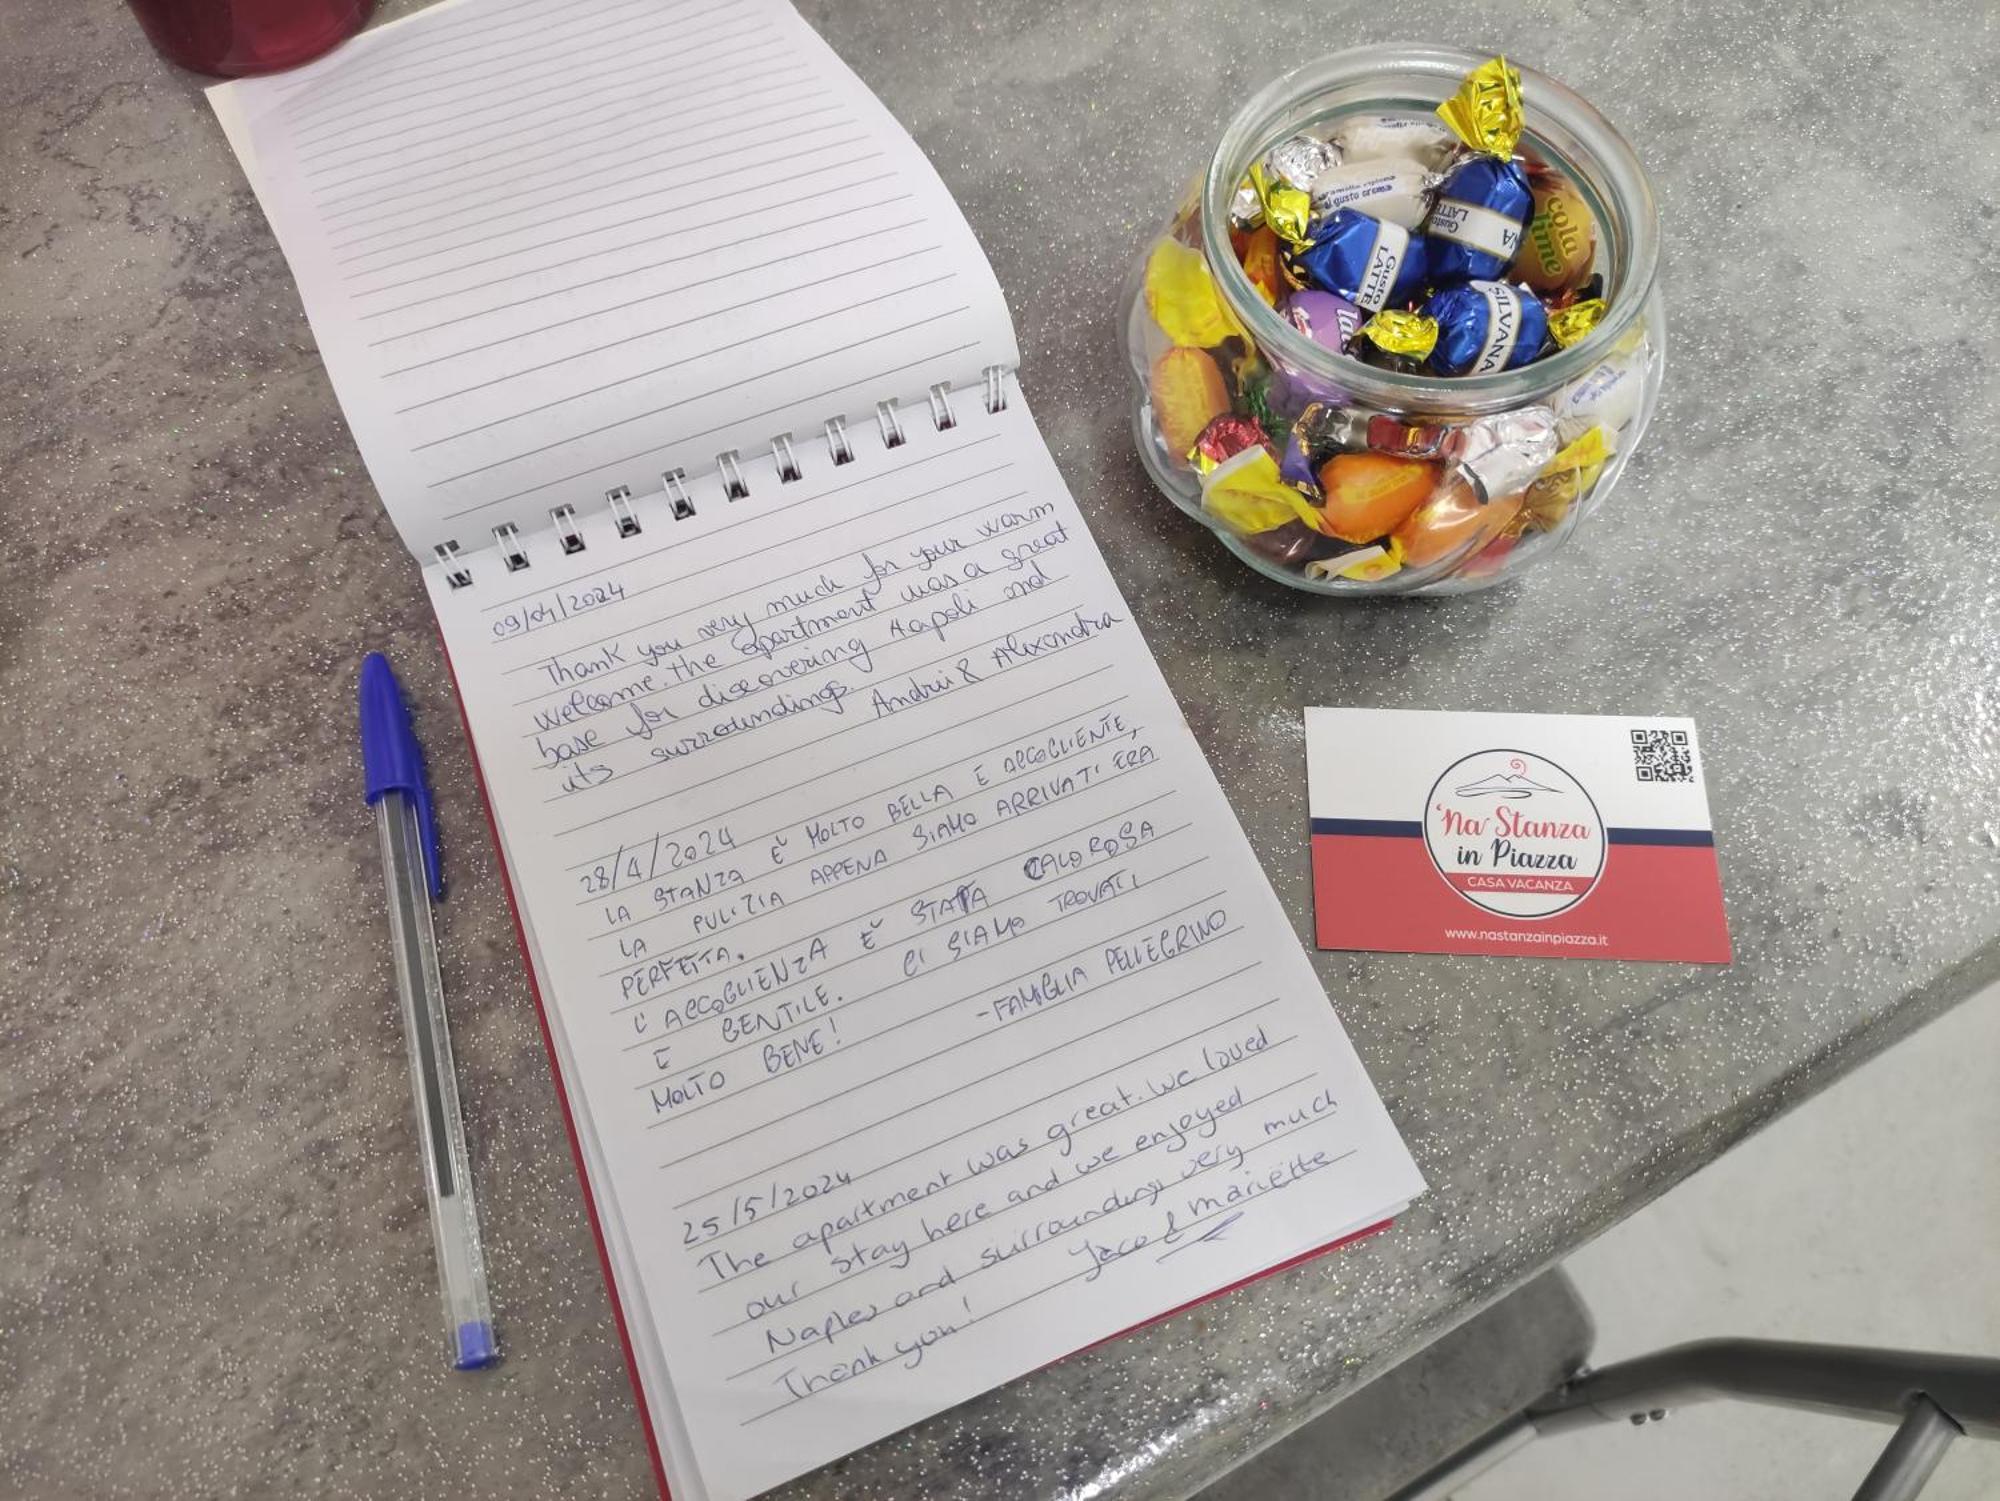 09/04/2024
Thank you very much for your warm
welcome. The apartment was a great
base for discovering Napoli and
its surroundings.
Andrii & Alexandra
28/4/2024
LA STANZA È MOLTO BELLA E ACCOGLIENTE,
LA PULIZIA APPENA SIAMO ARRIVATI ERA
PERFETTA.
L'ACCOGLIENZA È STATA CALOROSA
E GENTILE. CI SIAMO TROVATI
MOLTO BENE!
-FAMIGLIA PELLEGRINO
25/5/2024
The apartment was great. We loved
our stay here and we enjoyed
Naples and surroundings very much
Thank you! Jaco & Mariëtte
Gusto
LATTE
Gusto
LATTE
SILVANA
al gusto crema
cola
lime
'Na Stanza
in Piazza
CASA VACANZA
www.nastanzainpiazza.it